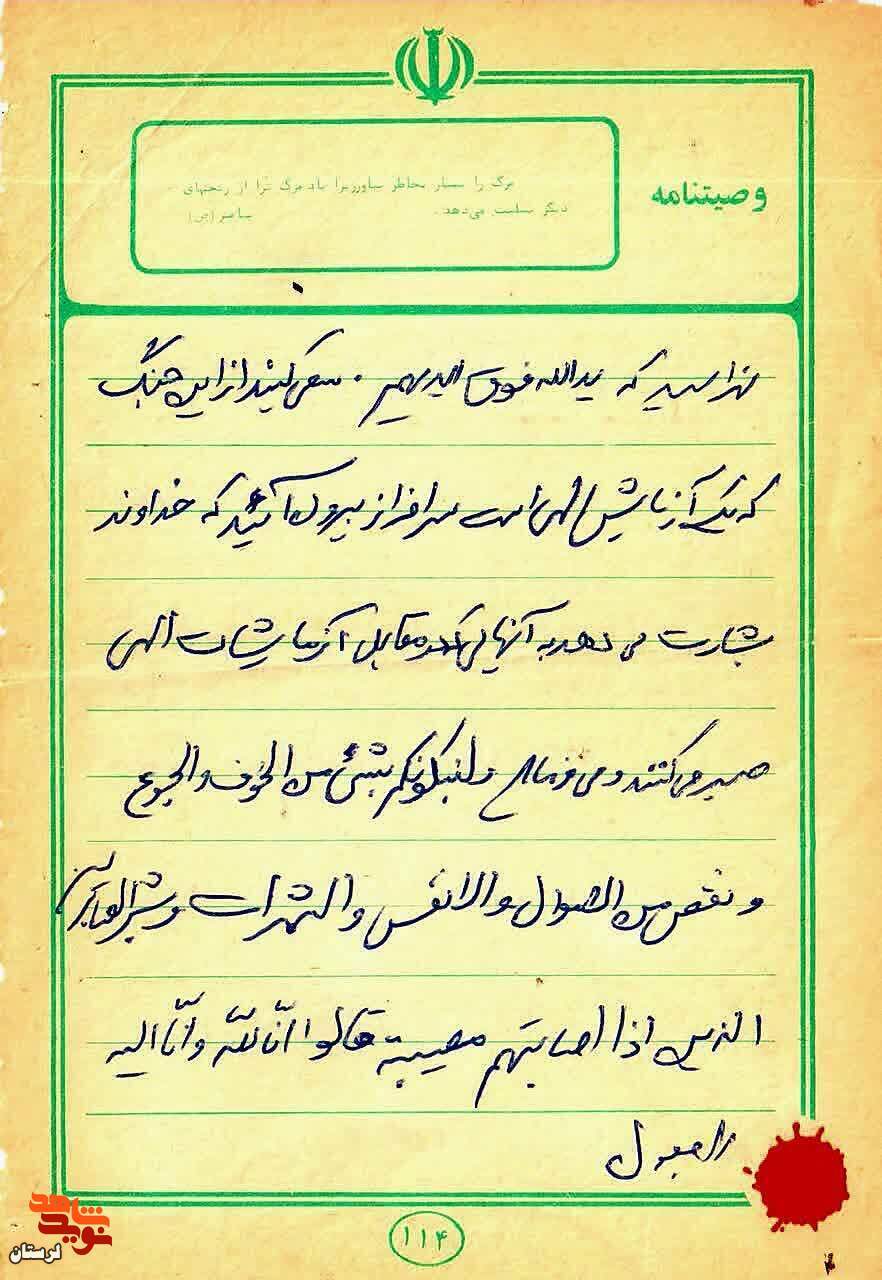 وصیتنامه
مرگ را بسیار بخاطر بیاورزیرا یاد مرگ ترا از رنجهای
دیگر سلامت می‌دهد.
نهراسید که یدالله فوق ایدیهم. سعی کنید از این جنگ
که یک آزمایش الهی است سرافراز بیرون آئید که خداوند
بشارت می دهد به آنهایی که در مقابل آزمایشات الهی
صبر می کنند و می فرماید ولنبلونکم بشئ من الخوف والجوع
و نقص من الاموال والانفس والثمرات وبشر الصابرین
الذین اذا اصابتهم مصیبة قالوا انّا للّه وانّا الیه
راجعون
۱۱۴
نوید شاهد
لرستان